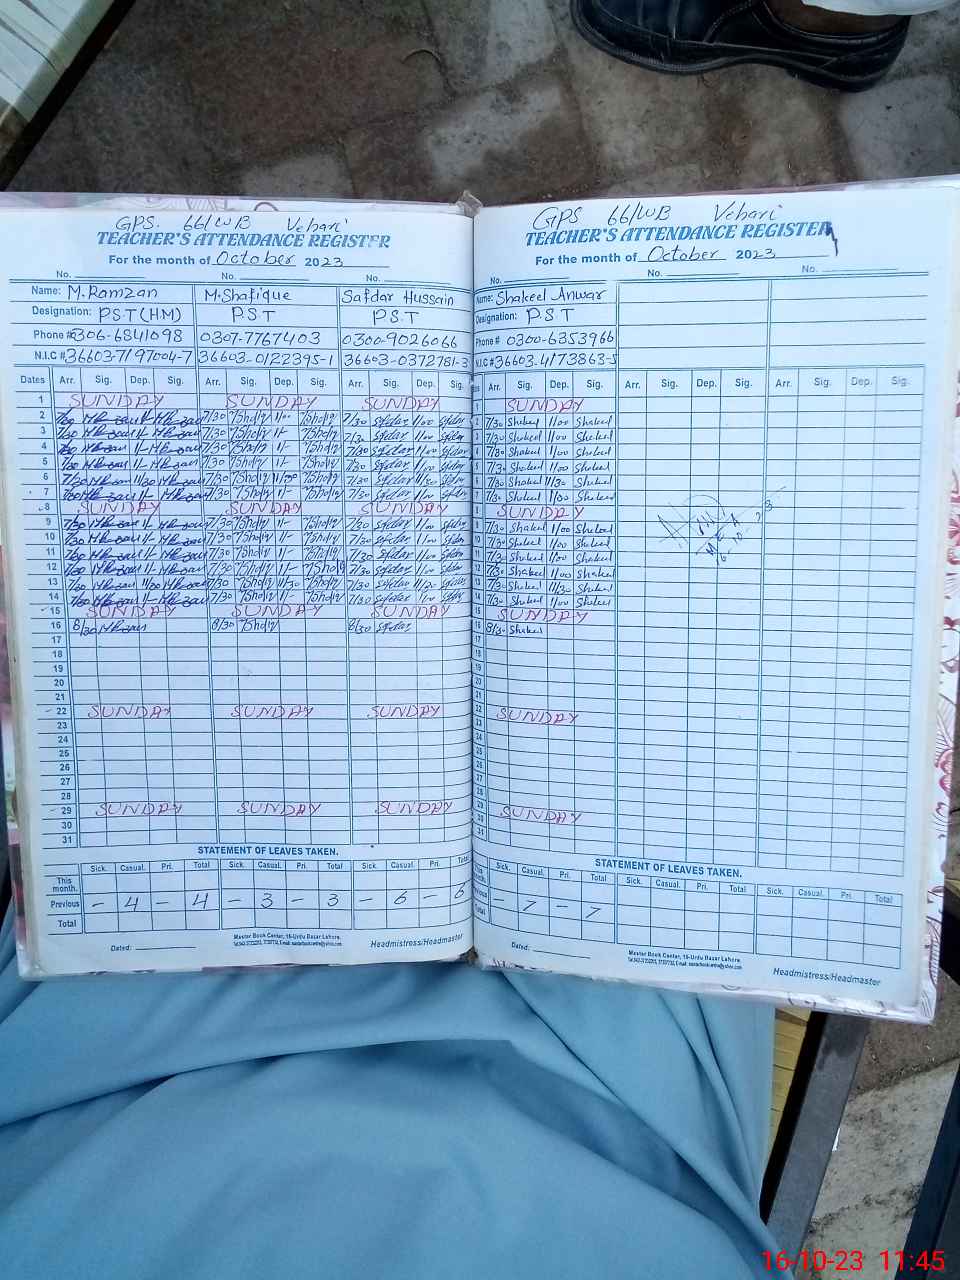 GPS. 66/WB Vehari
TEACHER'S ATTENDANCE REGISTER
For the month of October 2023
No. No. No.
Name: M.Ramzan M.Shafique Safdar Hussain
Designation: PST(HM) PST PST
Phone # 0306-6841098 0307-7767403 0300-9026066
N.I.C # 36603-7197004-7 36603-0122395-1 36603-0372781-3
Dates Arr. Sig. Dep. Sig. Arr. Sig. Dep. Sig. Arr. Sig. Dep. Sig.
1 SUNDAY SUNDAY SUNDAY
2 7/30 7/30 7/30 Safdar 11/00 Safdar
3 7/30 7/30 7/30 Safdar 11/00 Safdar
4 7/30 7/30 7/30 Safdar 11/00 Safdar
5 7/30 7/30 7/30 Safdar 11/00 Safdar
6 7/30 11/30 7/30 11/30 7/30 Safdar 11/30 Safdar
7 7/30 7/30 7/30 Safdar 11/00 Safdar
8 SUNDAY SUNDAY SUNDAY
9 7/30 7/30 7/30 Safdar 11/00 Safdar
10 7/30 7/30 7/30 Safdar 11/00 Safdar
11 7/30 7/30 7/30 Safdar 11/00 Safdar
12 7/30 7/30 7/30 Safdar 11/00 Safdar
13 7/30 11/30 7/30 11/30 7/30 Safdar 11/30 Safdar
14 7/30 7/30 7/30 Safdar 11/00 Safdar
15 SUNDAY SUNDAY SUNDAY
16 8/30 8/30 8/30 Safdar
17
18
19
20
21
22 SUNDAY SUNDAY SUNDAY
23
24
25
26
27
28
29 SUNDAY SUNDAY SUNDAY
30
31
STATEMENT OF LEAVES TAKEN.
Sick. Casual. Pri. Total Sick. Casual. Pri. Total Sick. Casual. Pri. Total
This month.
Previous - 4 - 4 - 3 - 3 - 6 - 6
Total
Dated:
Master Book Center, 16-Urdu Bazar Lahore.
Headmistress/Headmaster
GPS 66/WB Vehari
TEACHER'S ATTENDANCE REGISTER
For the month of October 2023
No. No. No.
Name: Shakeel Anwar
Designation: PST
Phone # 0300-6353966
N.I.C # 36603-4173863-5
Arr. Sig. Dep. Sig. Arr. Sig. Dep. Sig. Arr. Sig. Dep. Sig.
1 SUNDAY
2 7/30 Shakeel 11/00 Shakeel
3 7/30 Shakeel 11/00 Shakeel
4 7/30 Shakeel 11/00 Shakeel
5 7/30 Shakeel 11/00 Shakeel
6 7/30 Shakeel 11/30 Shakeel
7 7/30 Shakeel 11/00 Shakeel
8 SUNDAY
9 7/30 Shakeel 11/00 Shakeel
10 7/30 Shakeel 11/00 Shakeel
11 7/30 Shakeel 11/00 Shakeel
12 7/30 Shakeel 11/00 Shakeel
13 7/30 Shakeel 11/30 Shakeel
14 7/30 Shakeel 11/00 Shakeel
15 SUNDAY
16 8/30 Shakeel
17
18
19
20
21
22 SUNDAY
23
24
25
26
27
28
29 SUNDAY
30
31
MEA
16-10-23
STATEMENT OF LEAVES TAKEN.
Sick. Casual. Pri. Total Sick. Casual. Pri. Total Sick. Casual. Pri. Total
This month.
Previous - 7 - 7
Total
Dated:
Master Book Center, 16-Urdu Bazar Lahore.
Headmistress/Headmaster
16-10-23 11:45